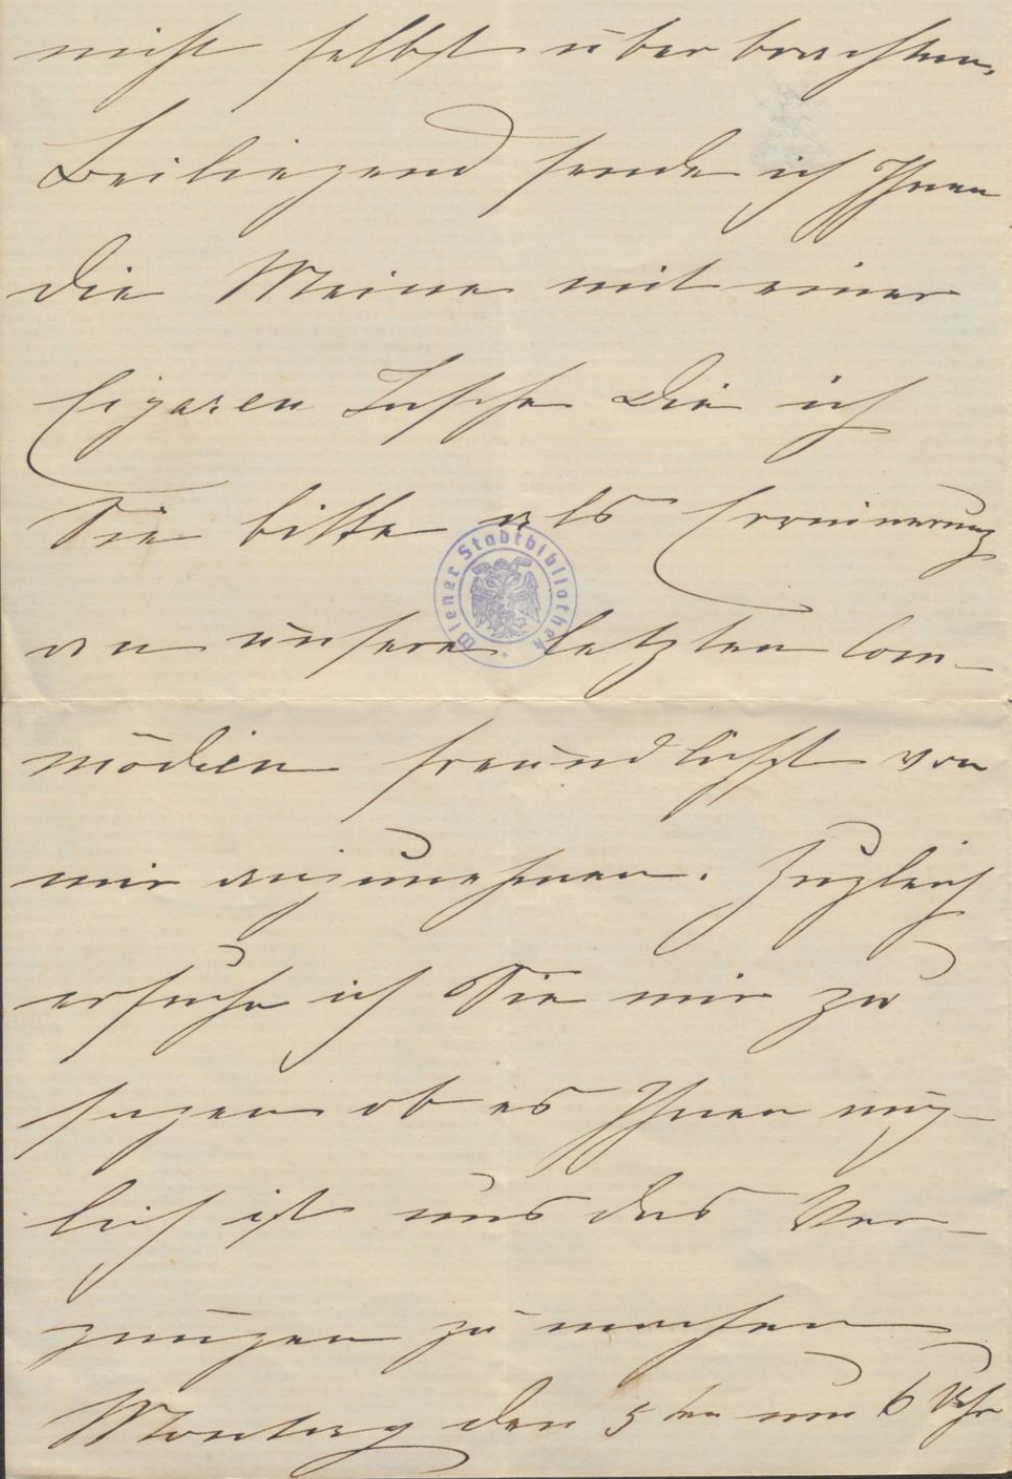 nicht selbst überbrachten.
Beiliegend sende ich Ihnen
die Meine mit einer
Cigaren Tasche die ich
Sie bitte als Errinnerung
an unsere letzten Com-
mödien freundlichst von
mir anzunehmen. Zugleich
ersuche ich Sie mir zu
sagen ob es Ihnen mög-
lich ist uns das Ver-
gnügen zu machen
Montag den 5ten um 6 Uhr
Wiener Stadtbibliothek